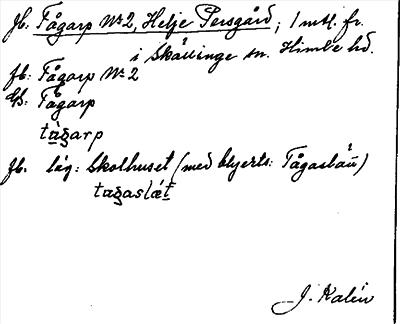 fb. Tågarp Nr 2, Helje Persgård; 1 mtl. fr.
i Skällinge sn. Himle hd.
fb: Tågarp Nr 2
Tågarp
tågarp
fb. låg: Skolhuset (med blyerts: Tågaslätt)
J. Kalén